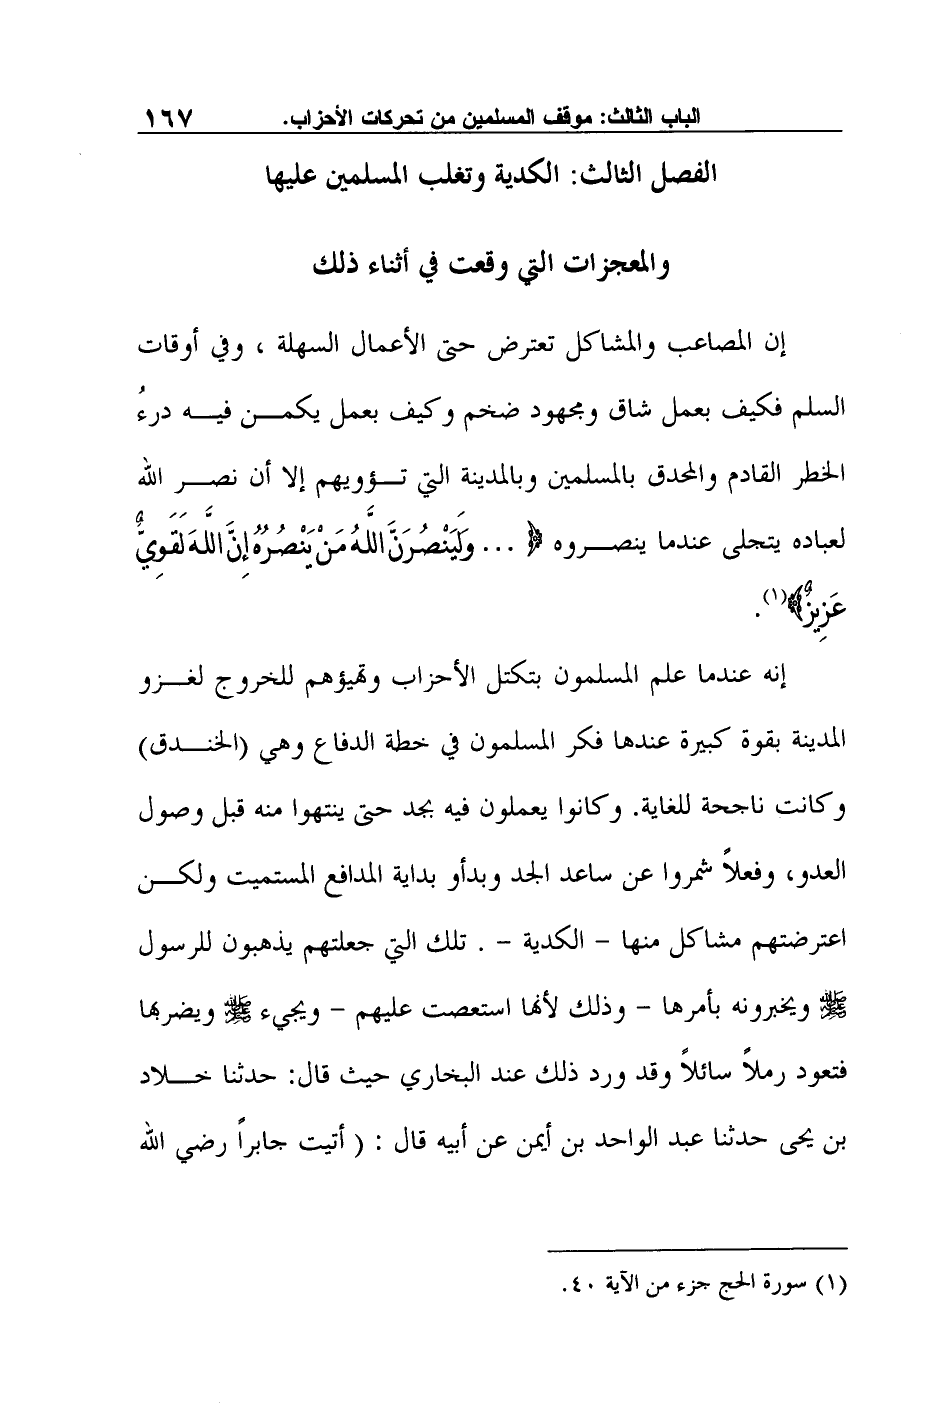 الباب الثالث: موقف المسلمين من تحركات الأحزاب. ١٦٧
الفصل الثالث: الكدية وتغلب المسلمين عليها
والمعجزات التي وقعت في أثناء ذلك
إن المصاعب والمشاكل تعترض حتى الأعمال السهلة ، وفي أوقات
السلم فكيف بعمل شاق ومجهود ضخم وكيف بعمل يكمـــن فيـــه درءُ
الخطر القادم والمحدق بالمسلمين وبالمدينة التي تـــؤويهم إلا أن نصـــر الله
لعباده يتجلى عندما ينصـــروه ﴿ ... وَلَيَنْصُرَنَّ اللَّهُ مَنْ يَنْصُرُهُ إِنَّ اللَّهَ لَقَوِيٌّ
عَزِيزٌ﴾(١).
إنه عندما علم المسلمون بتكتل الأحزاب وتهيؤهم للخروج لغـــزو
المدينة بقوة كبيرة عندها فكر المسلمون في خطة الدفاع وهي (الخنـــدق)
وكانت ناجحة للغاية. وكانوا يعملون فيه بجد حتى ينتهوا منه قبل وصول
العدو، وفعلاً شمروا عن ساعد الجد وبدأو بداية المدافع المستميت ولكـــن
اعترضتهم مشاكل منها - الكدية - . تلك التي جعلتهم يذهبون للرسول
ﷺ ويخبرونه بأمرها - وذلك لأنها استعصت عليهم - ويجيء ﷺ ويضربها
فتعود رملاً سائلاً وقد ورد ذلك عند البخاري حيث قال: حدثنا خـــلاد
بن يحى حدثنا عبد الواحد بن أيمن عن أبيه قال : ( أتيت جابراً رضي الله
(١) سورة الحج جزء من الآية ٤٠.